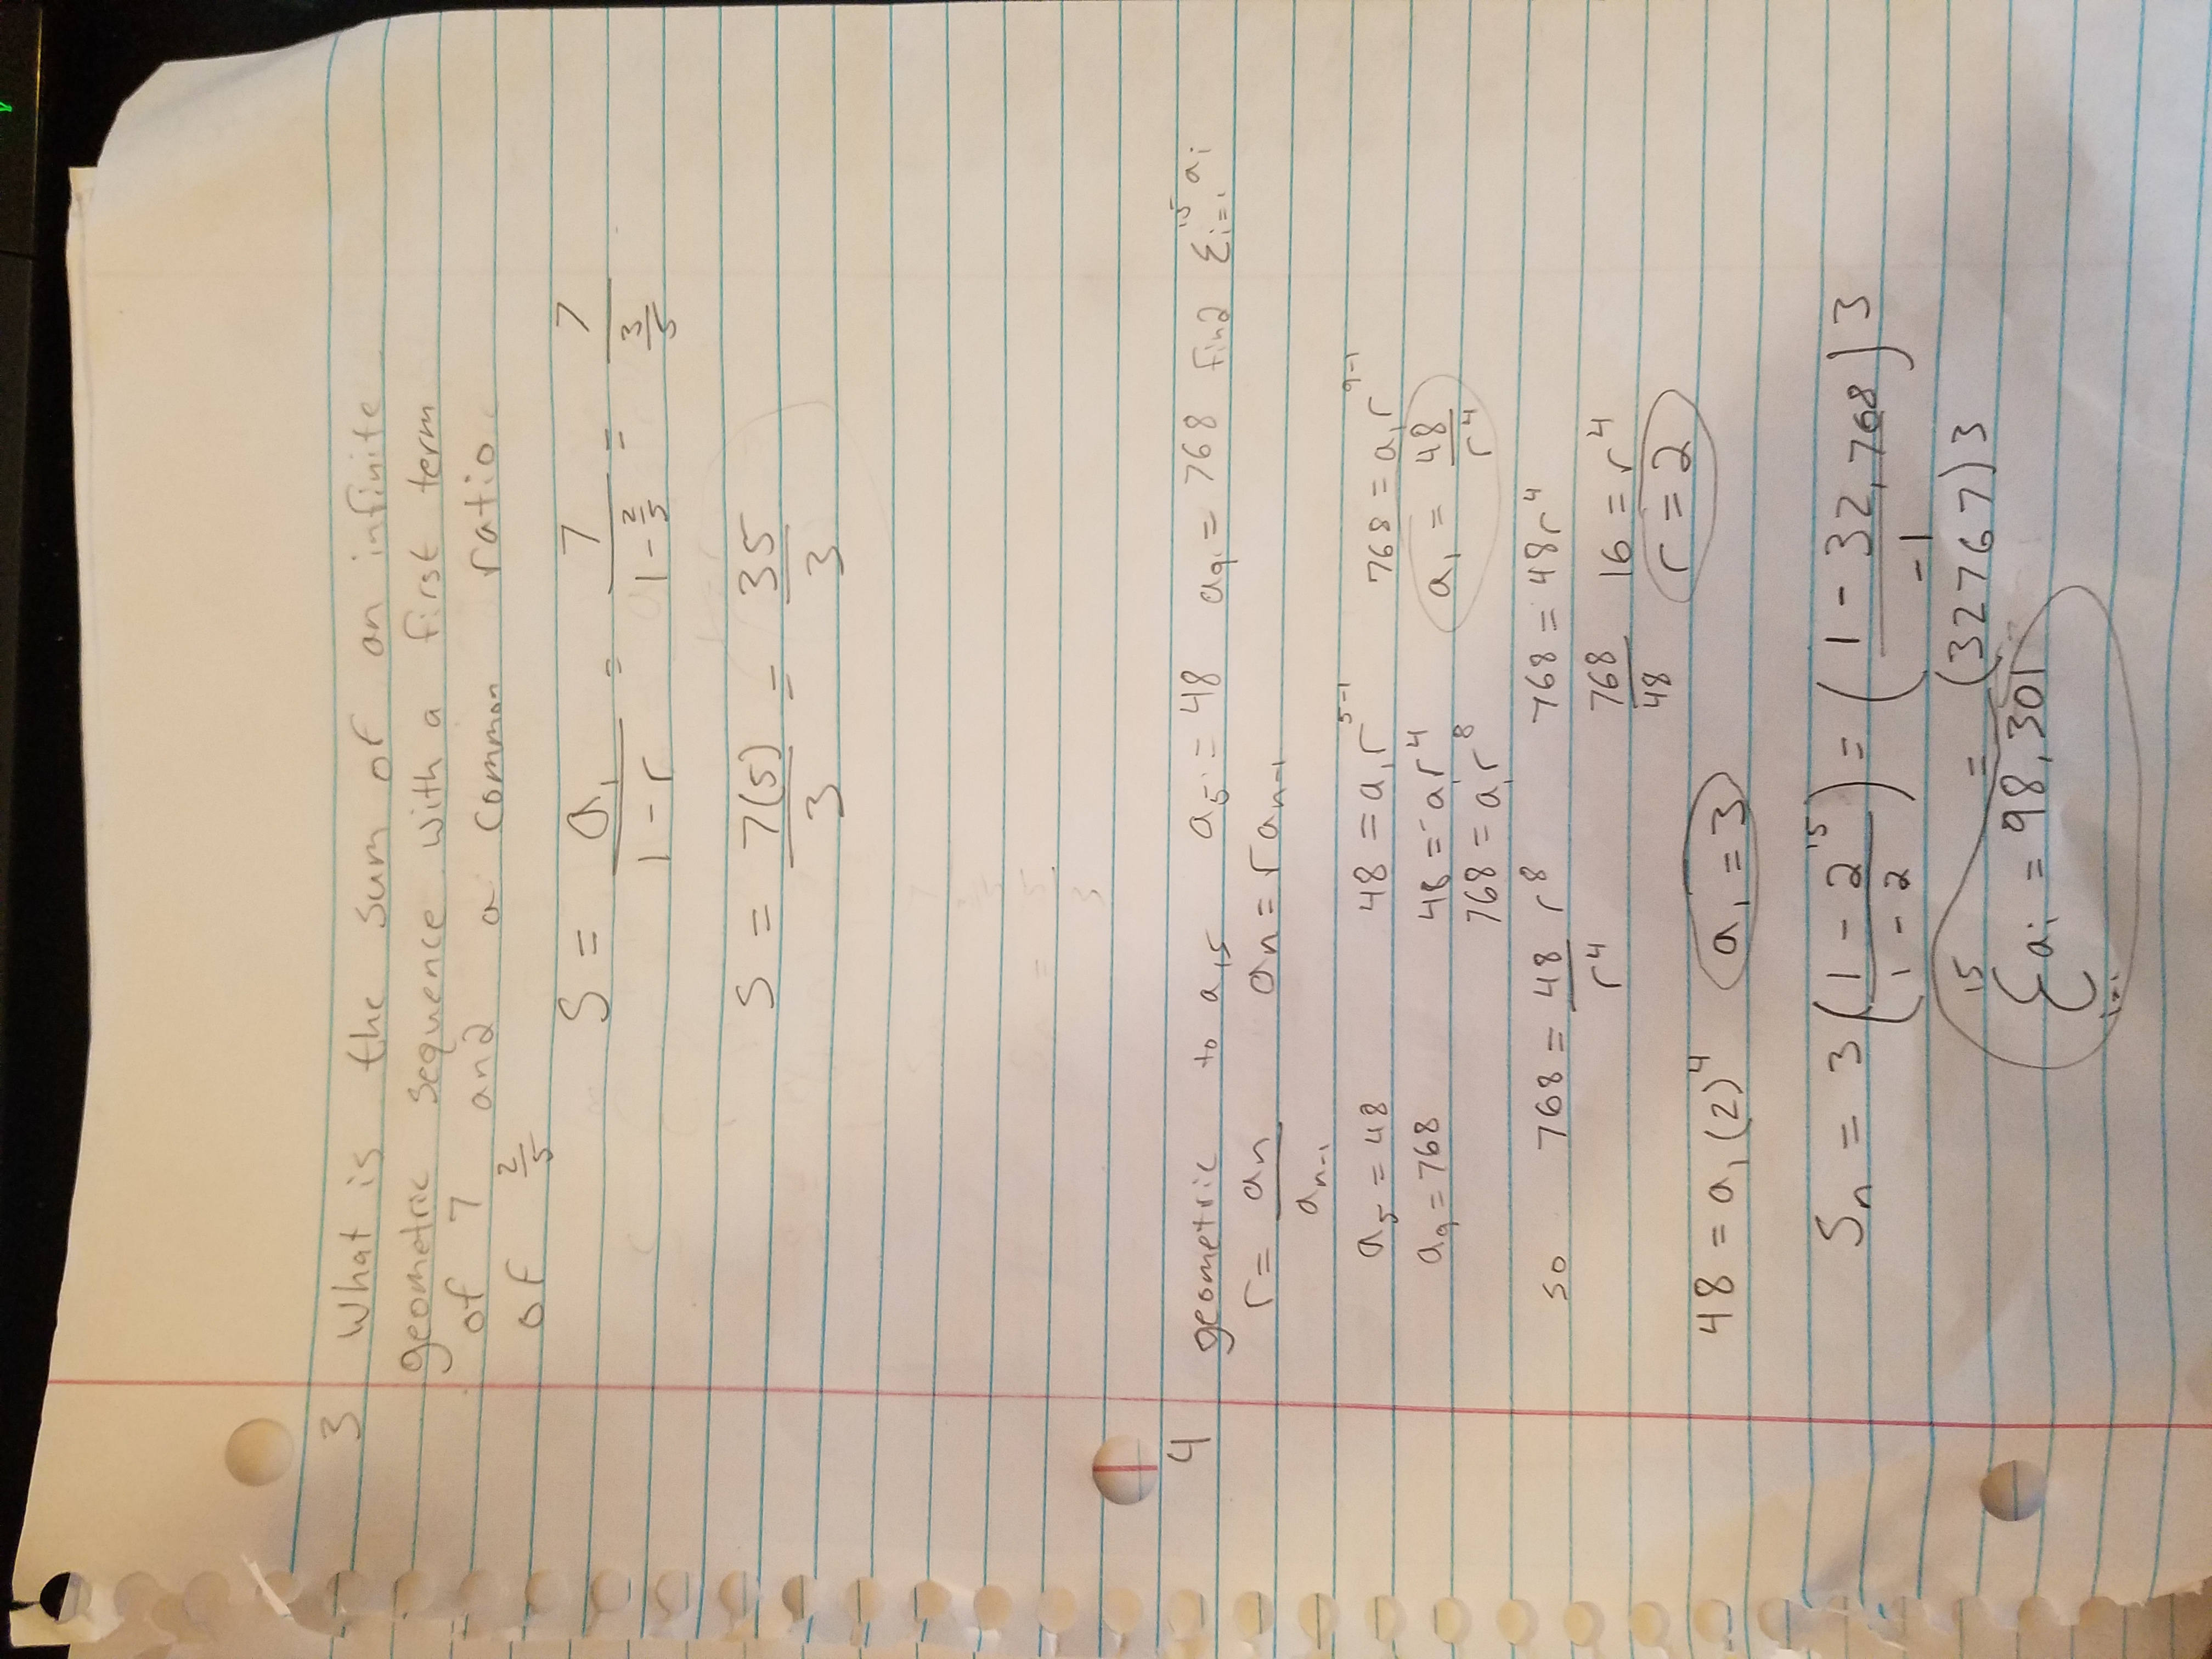 3 What is the sum of an infinite
geometric sequence with a first term
of 7 and a common ratio
of 2/5
S = a₁/(1-r) = 7/(1-2/5) = 7/(3/5)
S = 7(5)/3 = 35/3
4 geometric to a₁₅ a₅ = 48 a₉ = 768 find Σᵢ₌₁¹⁵ aᵢ
r = aₙ/aₙ₋₁ aₙ = r aₙ₋₁
a₅ = 48 48 = a₁r⁵⁻¹ 768 = a₁r⁹⁻¹
a₉ = 768 48 = a₁r⁴ a₁ = 48/r⁴
768 = a₁r⁸
so 768 = 48/r⁴ r⁸ 768 = 48r⁴
768/48 16 = r⁴
r = 2
48 = a₁(2)⁴ a₁ = 3
Sₙ = 3((1-2¹⁵)/(1-2)) = ((1-32,768)/-1)3
= (32767)3
Σᵢ₌₁¹⁵ aᵢ = 98,301